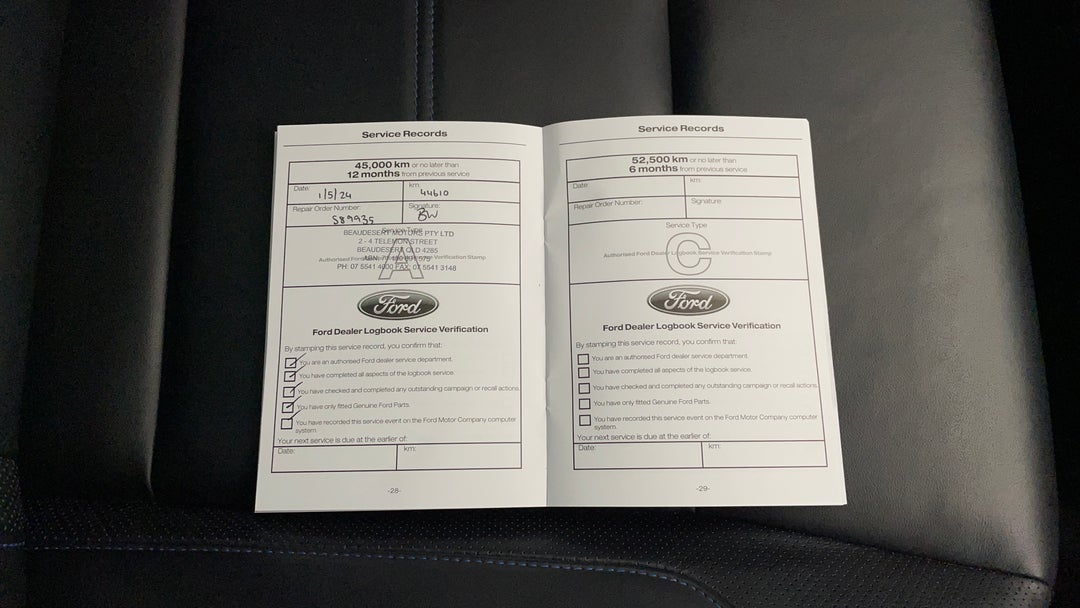 Service Records
45,000 km or no later than
12 months from previous service
Date: 1/5/24
km: 44610
Repair Order Number: S89935
Signature: BW
Service Type
BEAUDESERT MOTORS PTY LTD
2 - 4 TELEMON STREET
BEAUDESERT QLD 4285
Authorised Ford Dealer Logbook Service Verification Stamp
PH: 07 5541 4000 FAX: 07 5541 3148
A
Ford
Ford Dealer Logbook Service Verification
By stamping this service record, you confirm that:
You are an authorised Ford dealer service department.
You have completed all aspects of the logbook service.
You have checked and completed any outstanding campaign or recall actions.
You have only fitted Genuine Ford Parts.
You have recorded this service event on the Ford Motor Company computer
system.
Your next service is due at the earlier of:
Date:
km:
-28-
Service Records
52,500 km or no later than
6 months from previous service
Date
km:
Repair Order Number:
Signature
Service Type
C
Authorised Ford Dealer Logbook Service Verification Stamp
Ford
Ford Dealer Logbook Service Verification
By stamping this service record, you confirm that:
You are an authorised Ford dealer service department.
You have completed all aspects of the logbook service.
You have checked and completed any outstanding campaign or recall actions.
You have only fitted Genuine Ford Parts.
You have recorded this service event on the Ford Motor Company computer
system.
Your next service is due at the earlier of:
Date:
km:
-29-